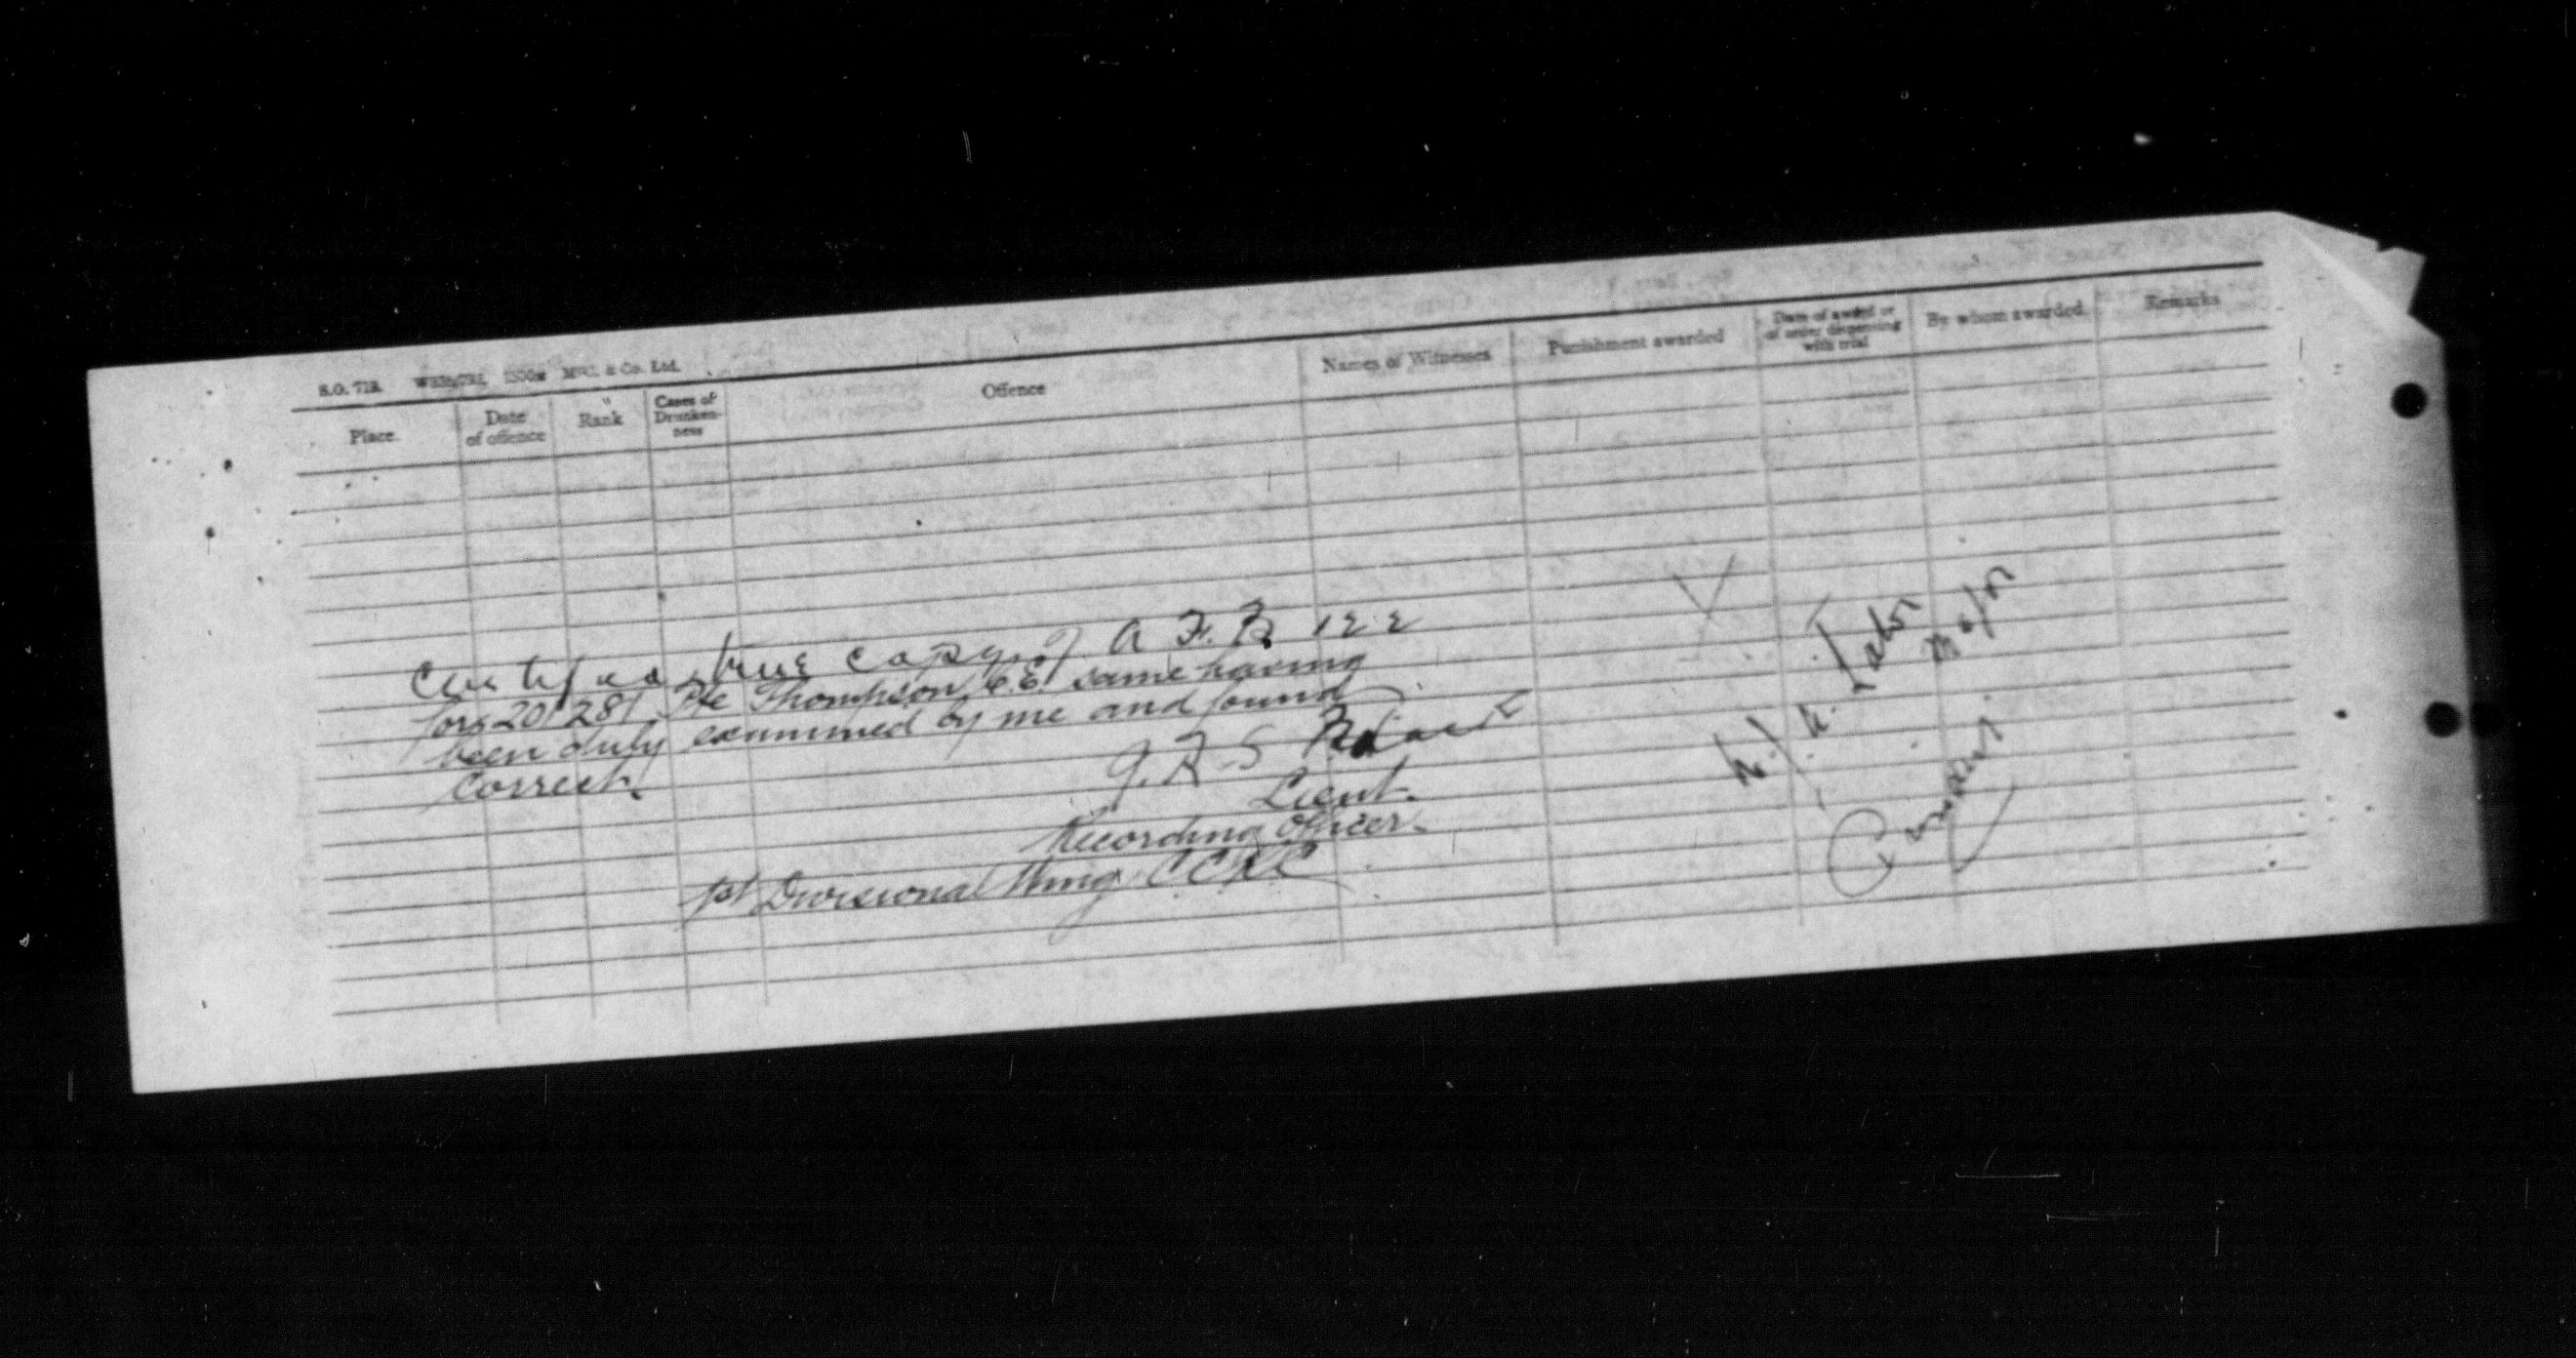 S.O. 712. & Co. Ltd.
Place. Date of offence Rank Cases of Drunken-ness Offence Names of Witnesses Punishment awarded Date of award or of order dispensing with trial By whom awarded Remarks
Certified true copy of A.F.B. 122
for 201281 Pte Thompson, C.E. same having
been duly examined by me and found
correct.
Lieut.
Recording Officer.
1st Divisional Wing C.C.A.C.
Major